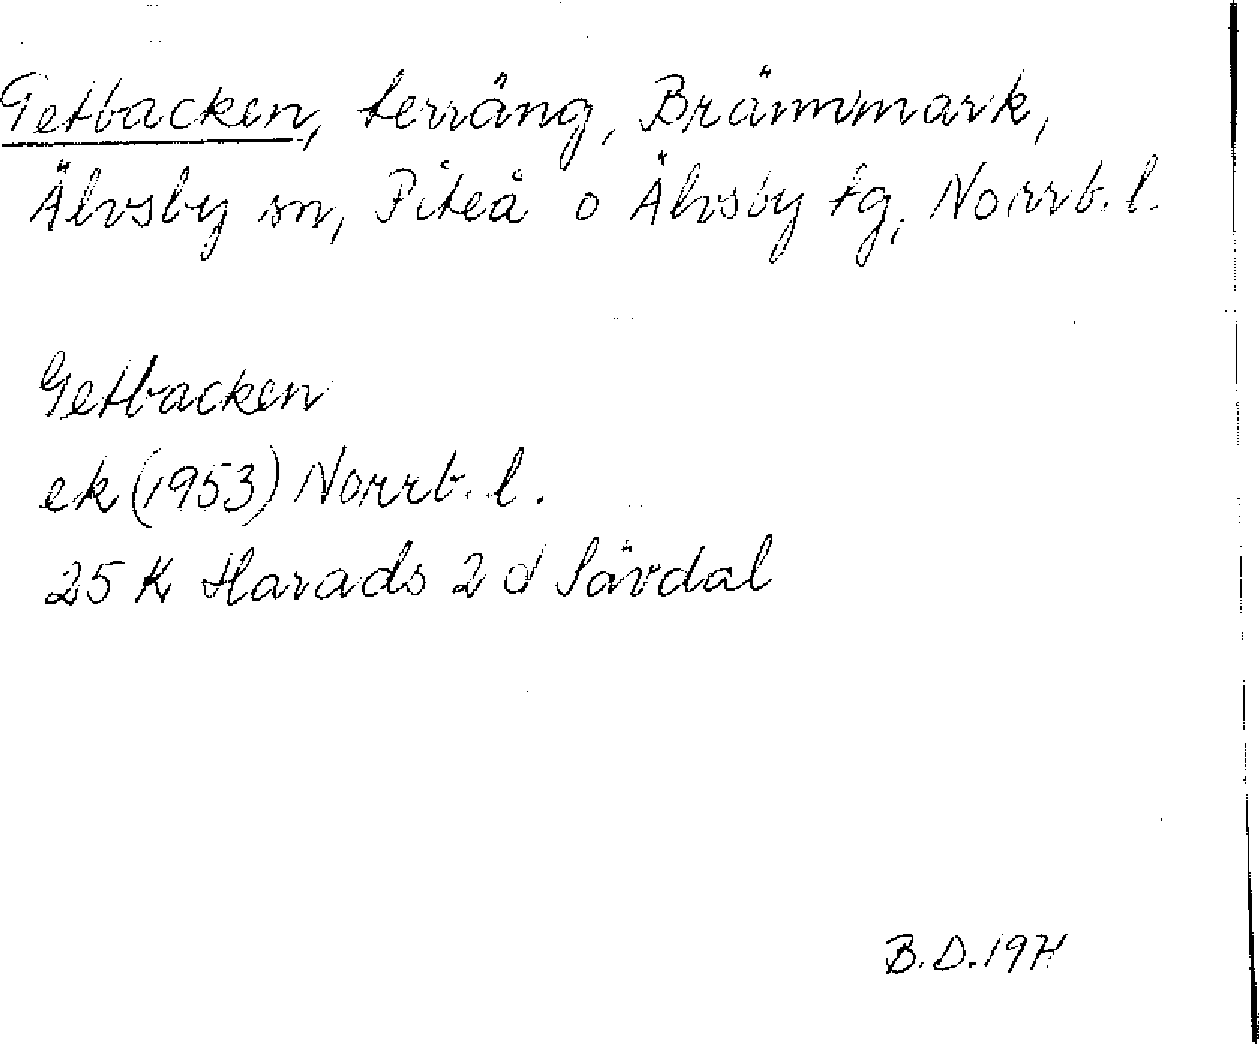 Getbacken, terräng, Brännmark,
Älvsby sn, Piteå o Älvsby tg, Norrb. l.
Getbacken
ek (1953) Norrb. l.
25 K Harads 2 d Sävdal
B. D. 1971